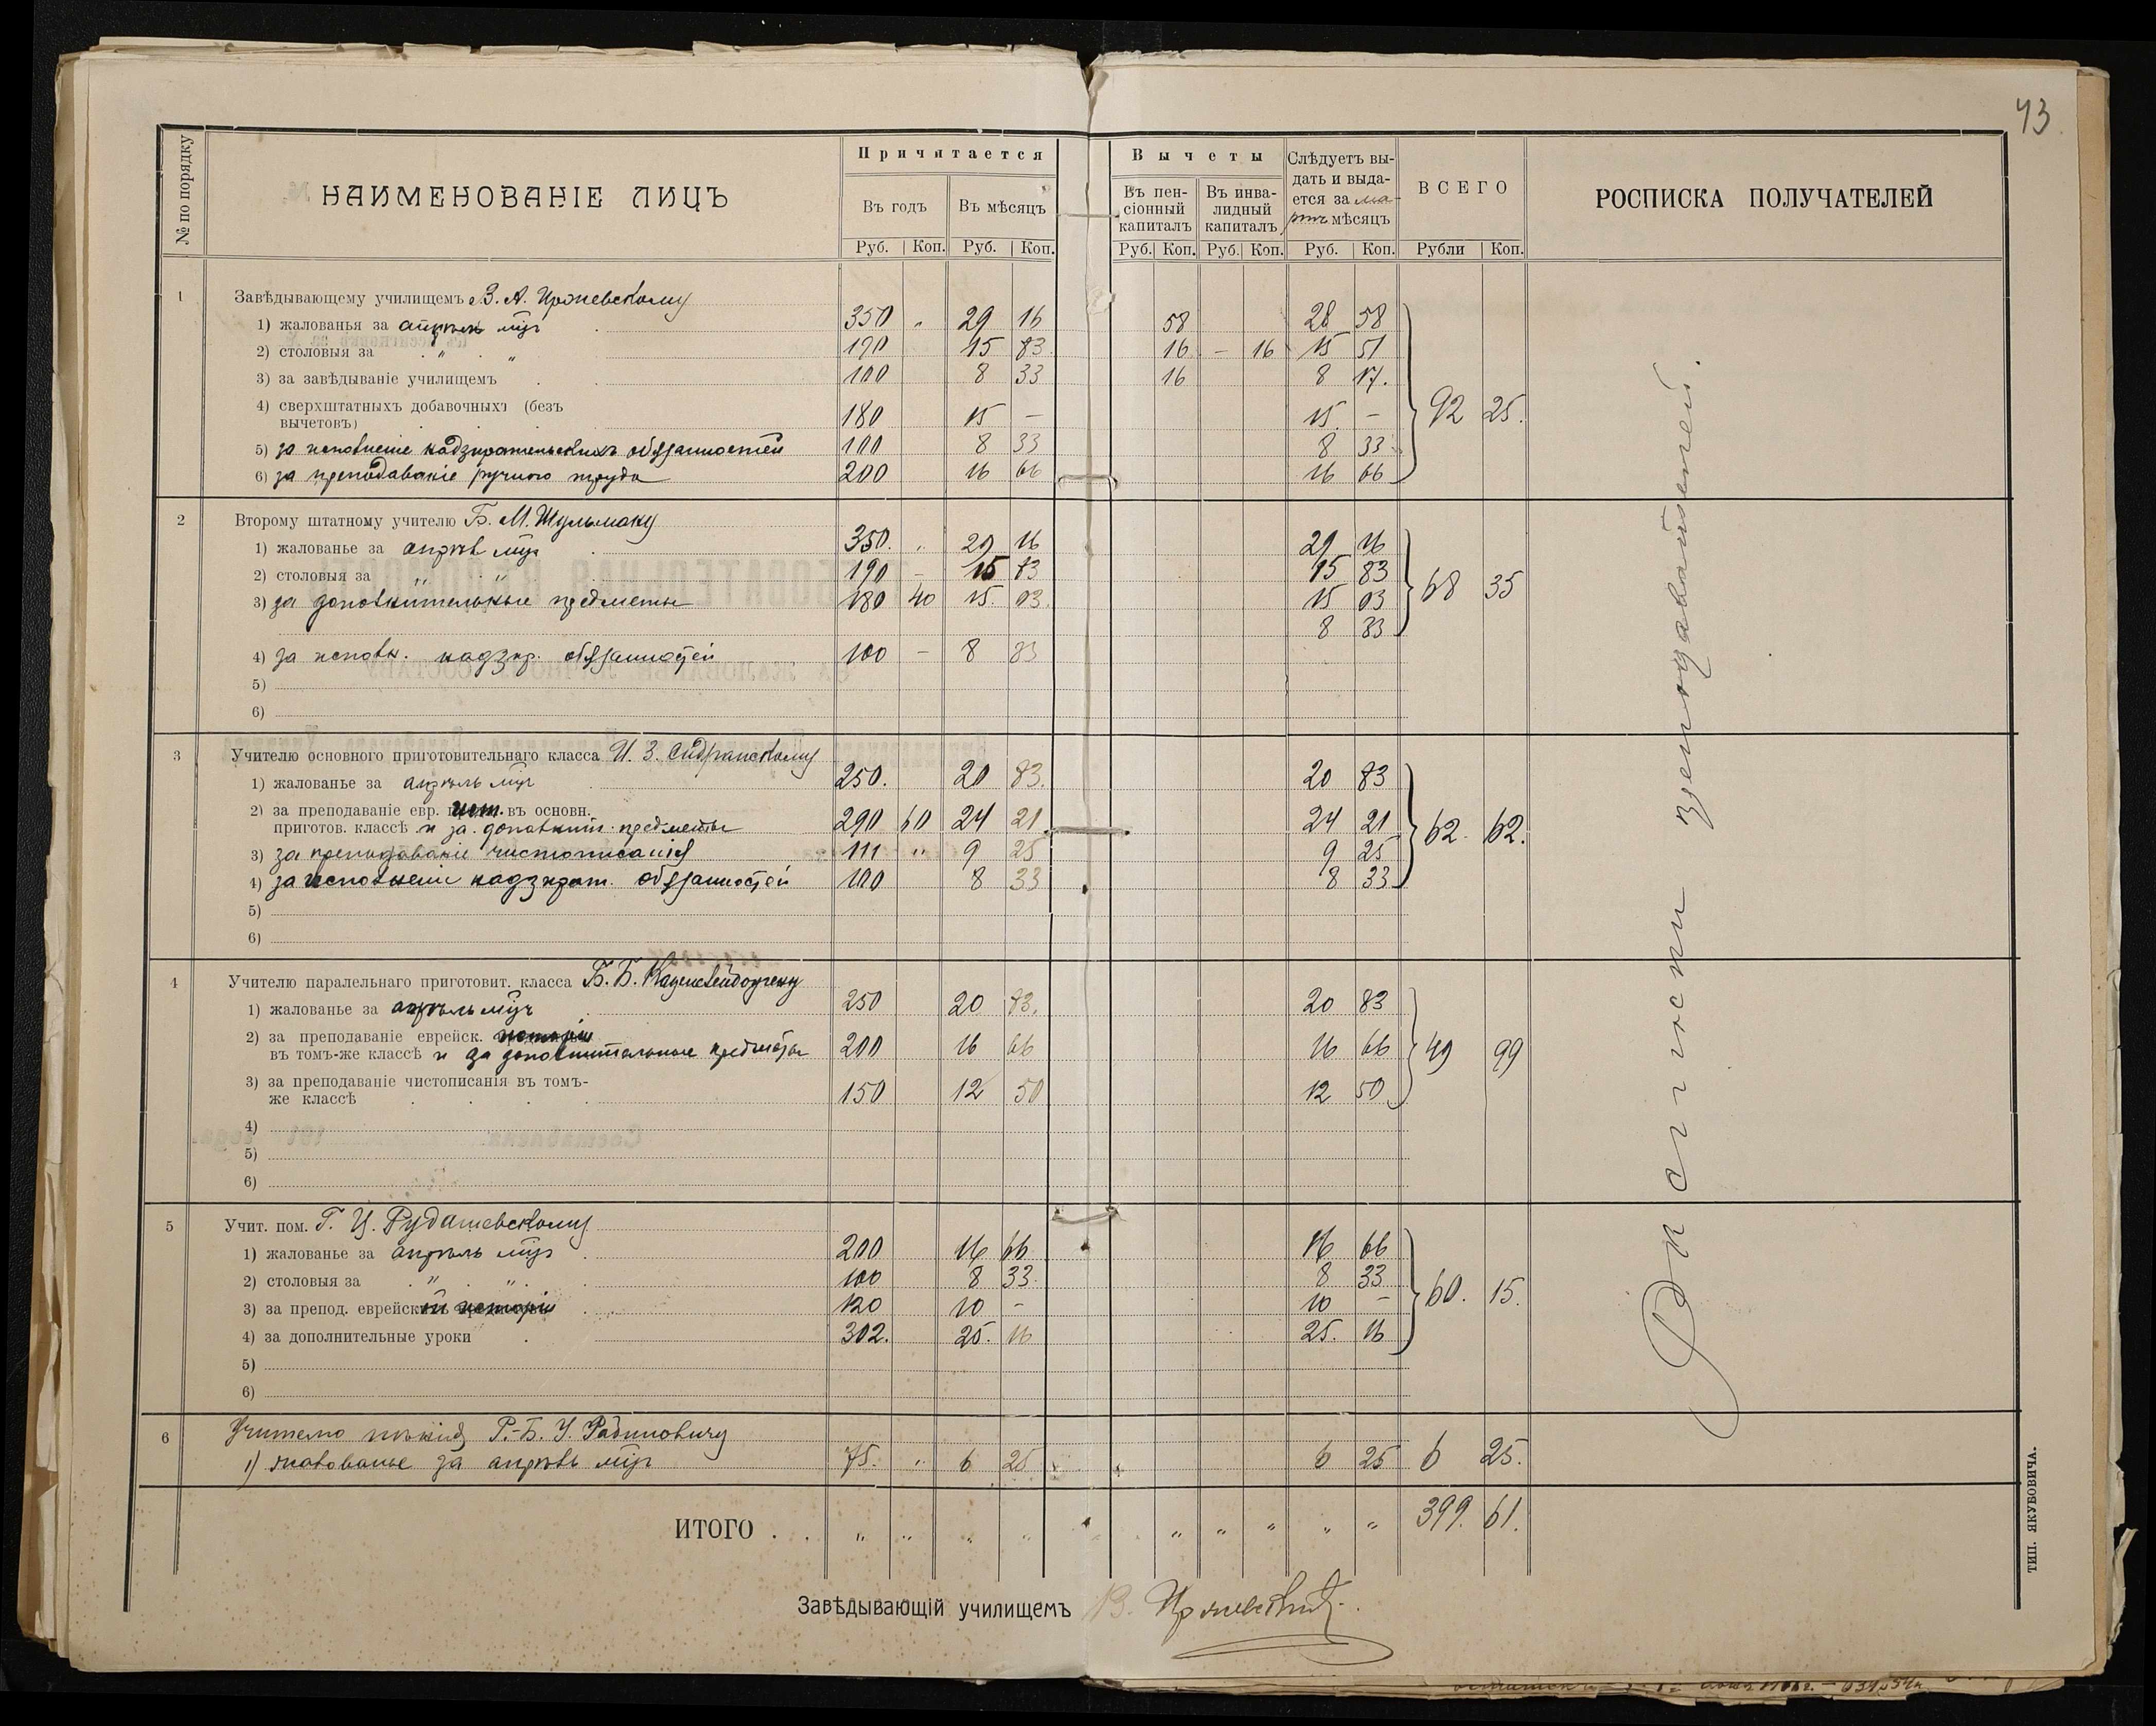 43
№ по порядку
НАИМЕНОВАНІЕ ЛИЦЪ
Причитается
Въ годъ Въ мѣсяцъ
Руб. Коп. Руб. Коп.
Вычеты
Въ пен-сіонный капиталъ Въ инва-лидный капиталъ
Руб. Коп. Руб. Коп.
Слѣдуетъ вы-
дать и выда-
ется за ма-
ртъ мѣсяцъ
Руб. Коп.
ВСЕГО
Рубли Коп.
РОСПИСКА ПОЛУЧАТЕЛЕЙ
1 Завѣдывающему училищемъ В. А. Иржевскому
1) жалованья за апрѣль мцъ 350 „ 29 16 58 28 58
2) столовыя за „ „ 190 15 83 16 — 16 15 51
3) за завѣдываніе училищемъ 100 8 33 16 8 17.
4) сверхштатныхъ добавочныхъ (безъ
вычетовъ) 180 15 — 15 — 92 25.
5) за исполненіе надзирательскихъ обязанностей 100 8 33 8 33
6) за преподаваніе ручного труда 200 16 66 16 66
2 Второму штатному учителю Б. М. Шульману
1) жалованье за апрѣль мцъ 350. „ 29 16 29 16
2) столовыя за „ „ 190 — 15 83 15 83
3) за дополнительные предметы 180 40 15. 03. 15 03 68 35
8 33
4) за исполн. надзир. обязанностей 100 — 8 33
5)
6)
3 Учителю основного приготовительнаго класса И. З. Сидранскому
1) жалованье за апрѣль мцъ 250. 20 83. 20 83
2) за преподаваніе евр. ист. въ основн.
приготов. классѣ и за дополнит. предметы 290 60 24 21 24 21 62. 62.
3) за преподаваніе чистописанія 111 „ 9 25 9 25
4) за исполненіе надзират. обязанностей 100 8 33 8 33
5)
6)
4 Учителю паралельнаго приготовит. класса Б. Б.
1) жалованье за апрѣль мцъ 250 20 83. 20 83
2) за преподаваніе еврейск. исторіи
въ томъ-же классѣ и за дополнительные предметы 200 16 66 16 66 49 99
3) за преподаваніе чистописанія въ томъ-
же классѣ 150 12 50 12 50
4)
5)
6)
5 Учит. пом. Г. Ц. Рудашевскому
1) жалованье за апрѣль мцъ 200 16 66 16 66
2) столовыя за „ „ 100 8 33. 8 33
3) за препод. еврейской исторіи 120 10 — 10 — 60. 15.
4) за дополнительные уроки 302. 25. 16 25. 16
5)
6)
6 Учителю пѣнія Р.-Б. У. Рабиновичу
1) жалованье за апрѣль мцъ 75. „ 6 25 6 25 6 25.
ИТОГО . . „ „ „ „ „ „ „ „ „ 399. 61.
Росписки
Завѣдывающій училищемъ В. Иржевскій.
ТИП. ЯКУБОВИЧА.